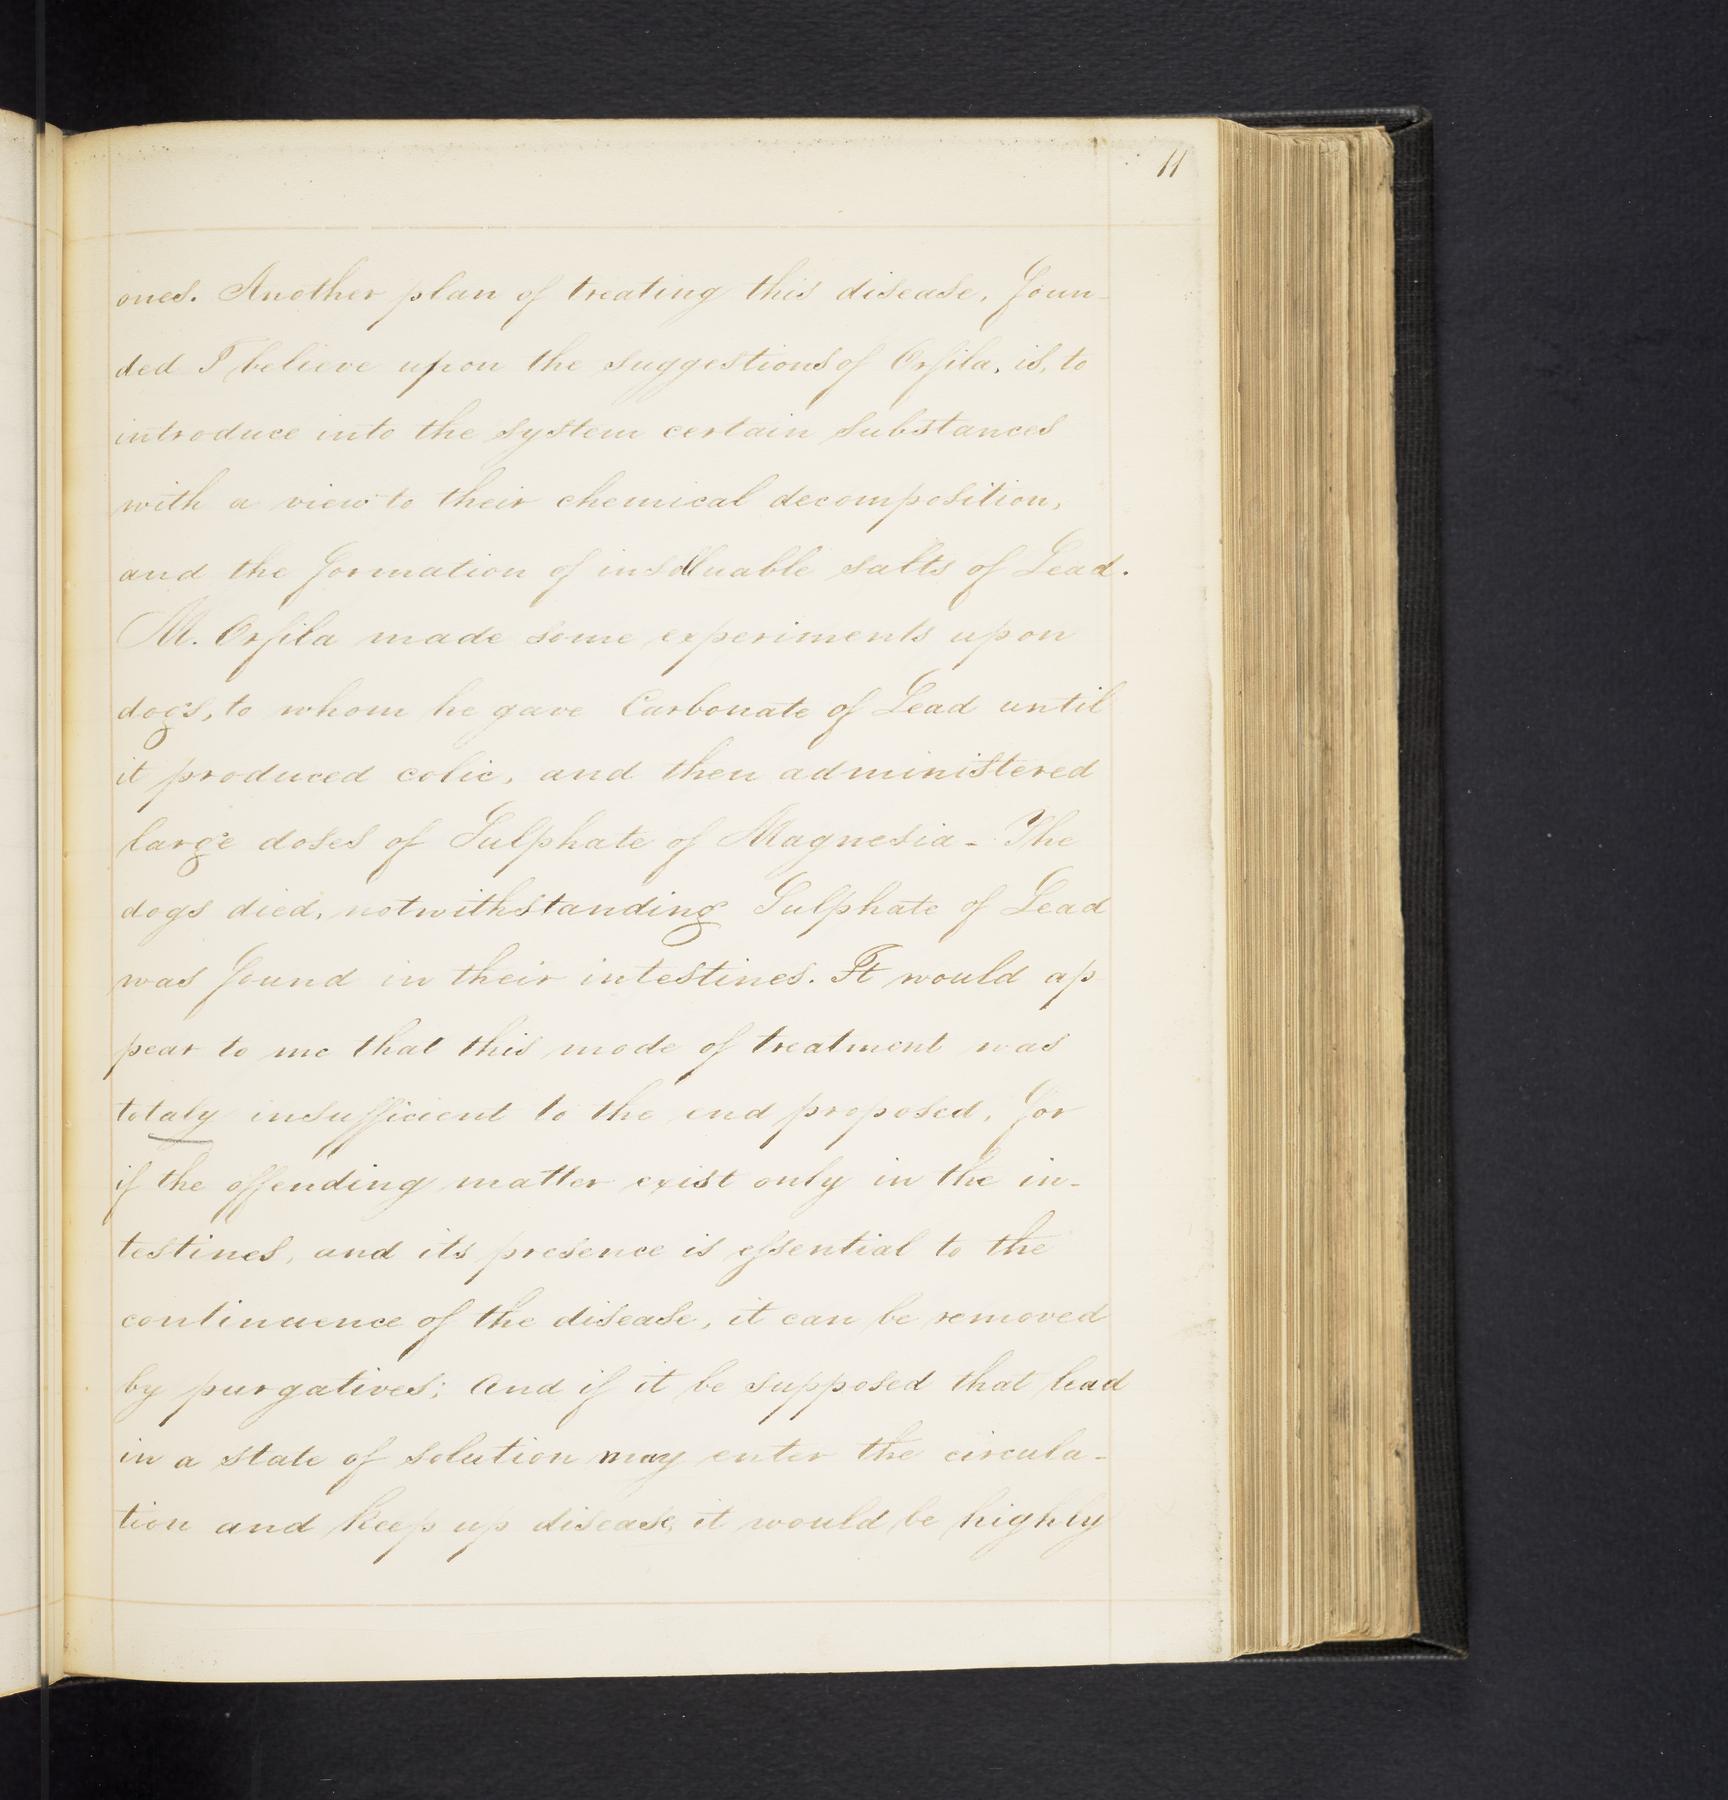 11
ones. Another plan of treating this disease, foun-
ded I believe upon the suggestions of Orfila, is, to
introduce into the system certain substances
with a view to their chemical decomposition,
and the formation of insolluable salts of Lead.
M. Orfila made some experiments upon
dogs, to whom he gave Carbonate of Lead until
it produced colic, and then administered
large doses of Sulphate of Magnesia - The
dogs died, notwithstanding Sulphate of Lead
was found in their intestines. It would ap
pear to me that this mode of treatment was
totaly insufficient to the end proposed, for
if the offending matter exist only in the in-
testines, and its presence is essential to the
continuence of the disease, it can be removed
by purgatives; and if it be supposed that lead
in a state of solution may enter the circula-
tion and keep up disease, it would be highly